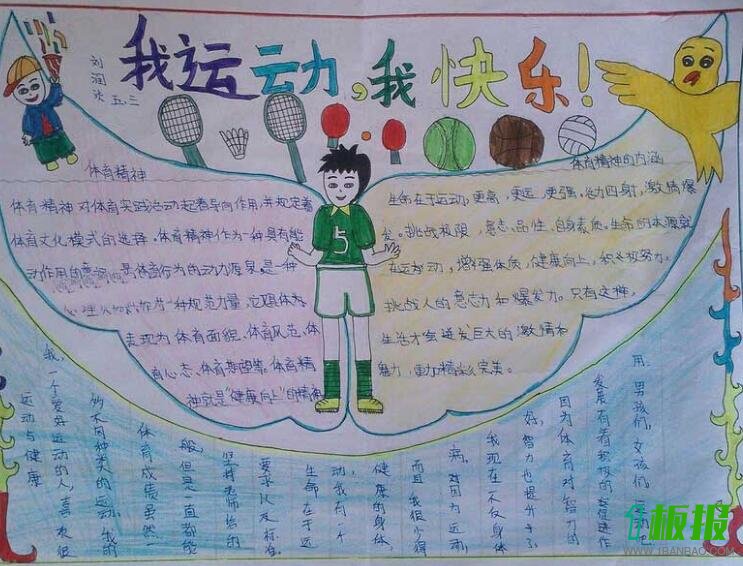 我运动,我快乐!
刘润冰
五.三
体育精神
体育精神对体育实践活动起着导向作用,并规定着
体育文化模式的选择。体育精神作为一种具有能
动作用的意识,是体育行为的动力源泉,是一种
心理 作为一种规范力量,它具体
表现为体育面貌、体育风范、体
育心态、体育期望等。体育精
神就是“健康向上”的精神
体育精神的内涵
生命在于运动,更高,更远,更强。活力四射,激情爆
发。挑战极限,意志、品性,自身素质。生命的本源就
在运动,增强体质,健康向上,积极努力,
挑战人的意志力和爆发力。只有这样,
生活才会迸发巨大的激情和
魅力,更加精采完美。
运动与健康
我,一个爱好运动的人,喜欢很
多不同种类的运动。我的
体育成绩虽然一
般,但是一直都能
坚持老师给的
要求以及标准。
生命在于运
动,我有一个
健康的身体,
而且我很少得
病。因为运动,
我现在不仅身体
好,智力也提升了。
因为体育对智力的
发展有着积极的促进作
用。男孩们,女孩们 吧
5
板报
WWW.1BANBAO.COM